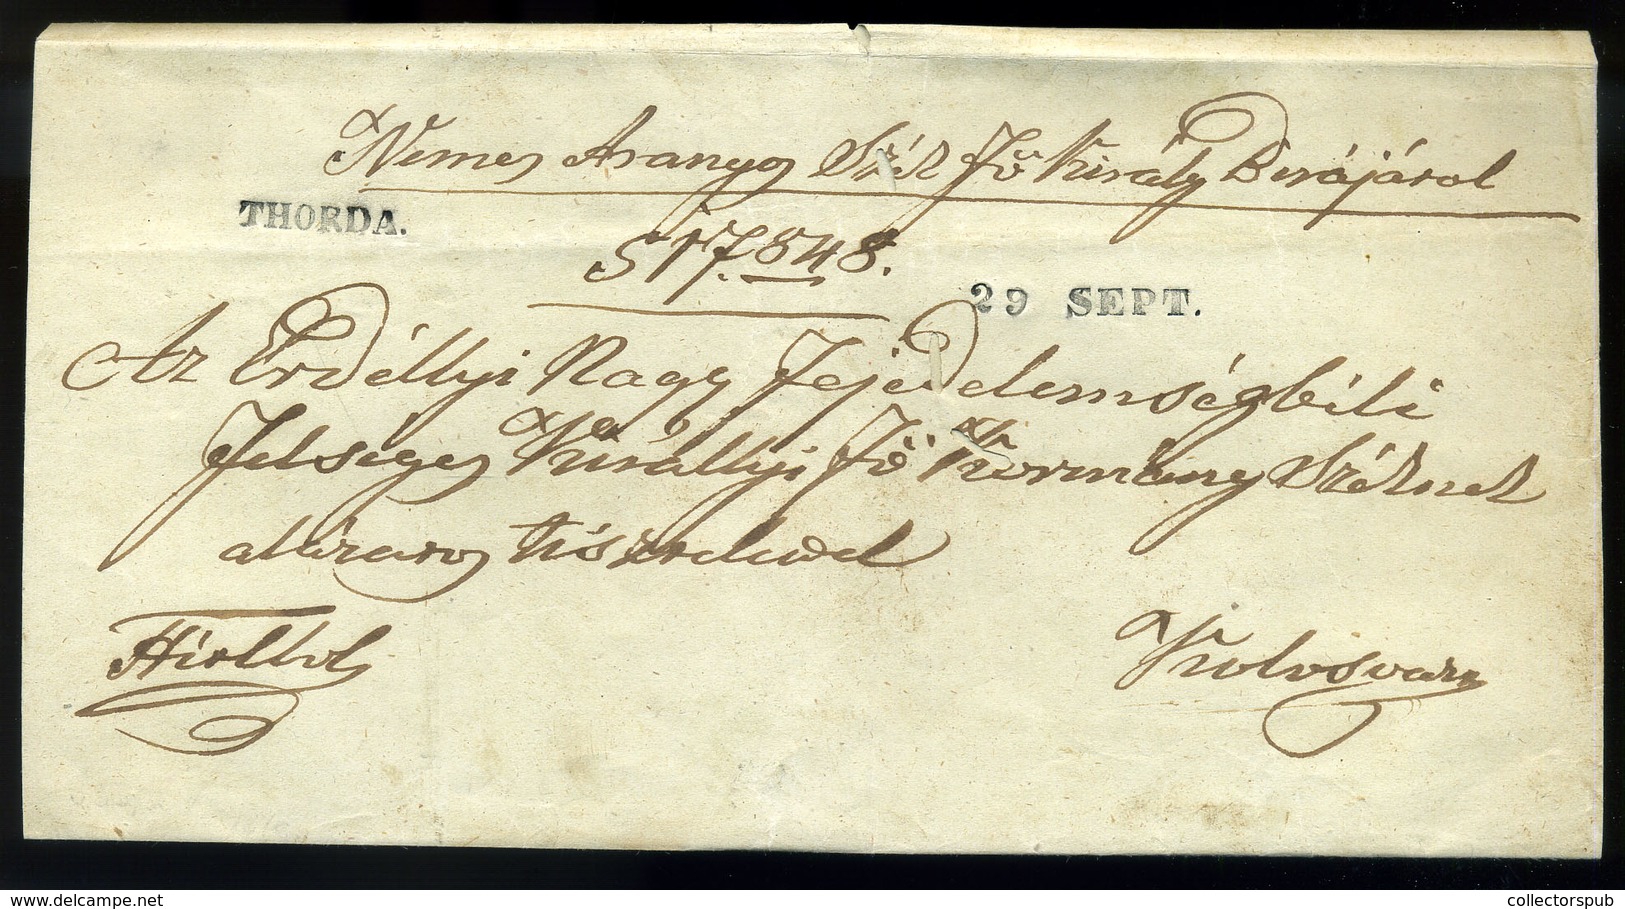 Nemes Aranyos Szék Fő Király Birájárol
THORDA.
S 17. 848.
29 SEPT.
Az Erdéllyi Nagy Fejedelemségbéli
Felséges Királlyi Fő Kormány Széknek
alázatos tisztelettel
Hivatalból
Kolosvárt
delcampe.net
collectorspub